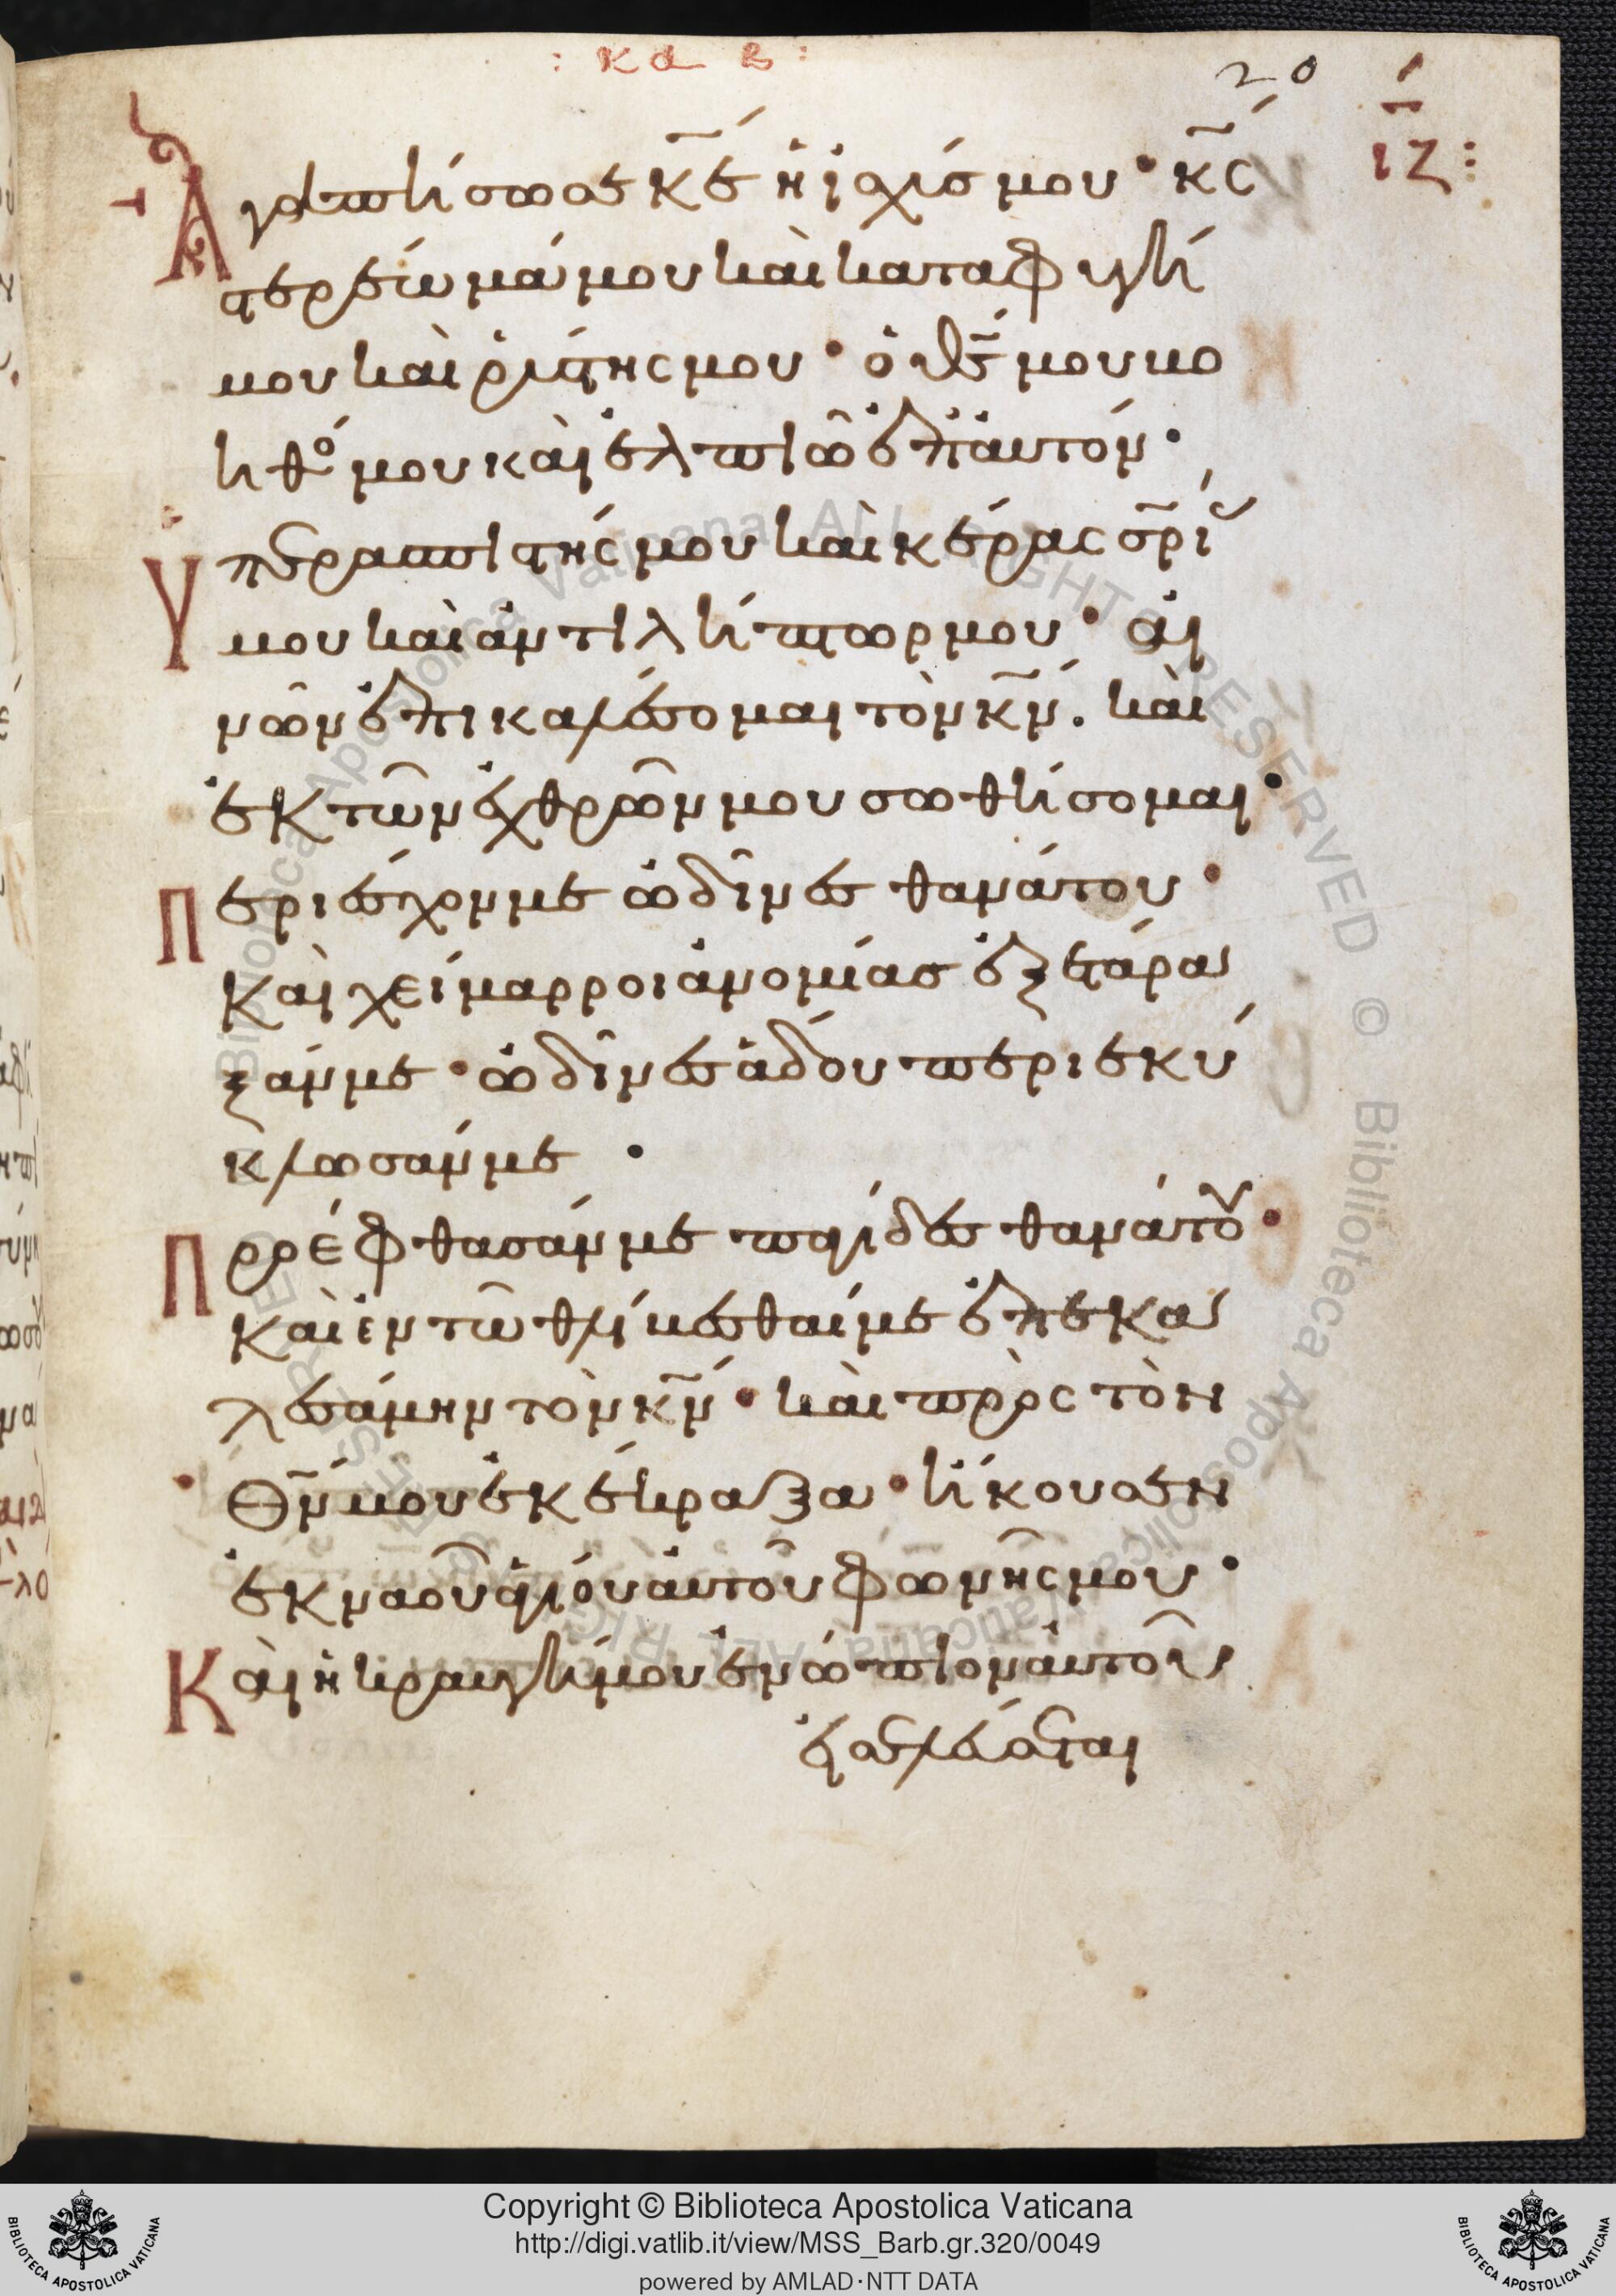 : κα β :
20
ιζ
Ἀγαπήσω σε κ̅ε̅ ἡ ἰσχύς μου · κ̅ς̅
στερέωμά μου καὶ καταφυγή
μου καὶ ῥύστης μου · ὁ θ̅ς̅ μου βο
ηθό μου καὶ ἐλπιῶ ἐπ' αὐτόν ·
Ὑπερασπιστής μου καὶ κέρας σ̅ρι
μου καὶ ἀντιλήπτωρ μου · αἰ
νῶν ἐπικαλέσομαι τὸν κ̅ν̅ . καὶ
ἐκ τῶν ἐχθρῶν μου σωθήσομαι ·
Περιέσχον με ὠδῖνες θανάτου ·
Καὶ χείμαρροι ἀνομίας ἐξετάρα
ξάν με · ὠδῖνες ἅδου περιεκύ
κλωσάν με ·
Προέφθασάν με παγίδες θανάτου ·
Καὶ ἐν τῶ θλίβεσθαί με ἐπεκα
λεσάμην τὸν κ̅ν̅ · καὶ πρὸς τὸν
θ̅ν̅ μου ἐκέκραξα · ἤκουσεν
ἐκ ναοῦ ἁγίου αὐτοῦ φωνῆς μου ·
Καὶ ἡ κραυγή μου ἐνώπιον αὐτοῦ
ἐσελεύσεται
Copyright © Biblioteca Apostolica Vaticana
http://digi.vatlib.it/view/MSS_Barb.gr.320/0049
powered by AMLAD·NTT DATA
BIBLIOTECA APOSTOLICA VATICANA
BIBLIOTECA APOSTOLICA VATICANA